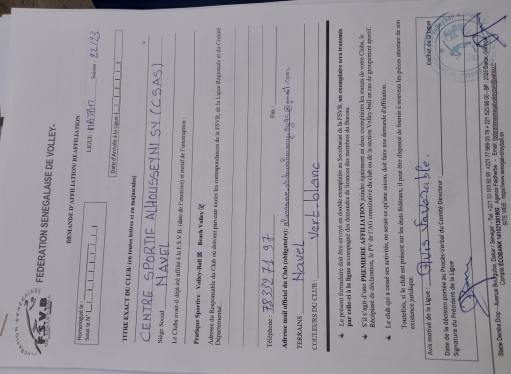 FEDERATION SENEGALAISE DE VOLLEY-
F.S.V.B
DEMANDE D'AFFILIATION/ REAFFILIATION
Homologué le :
Sous le N°
LIGUE : MATAM Saison : 22/23
Date d'Arrivée à la Ligue
TITRE EXACT DU CLUB/ (en toutes lettres et en majuscules)
CENTRE SPORTIF ALHOUSSEYNI SY (CSAS)
Siège Social NAVEL
Le Clubs avait-il déjà été affilié à la F.S.V.B. (date de l'exercice) et motif de l'interruption :
Pratique Sportive : Volley-Ball ☒ Beach Volley ☑
Adresse du Responsable du Club où doivent parvenir toutes les correspondances de la FSVB, de la Ligue Régionale et du Comité
Départemental…
Téléphone : 78 332 71 97 Fax :
Adresse mail officiel du Club (obligatoire): @gmail.com
TERRAINS Navel
COULEURS DU CLUB : Vert-blanc
Le présent formulaire doit être envoyé en double exemplaire au Secrétariat de la FSVB, un exemplaire sera transmis
par celle-ci à la ligue accompagné des demandes de licences des membres du Bureau.
S'il s'agit d'une PREMIERE AFFILIATION joindre également en deux exemplaires les statuts de votre Clubs, le
Récépissé de déclaration, le PV de l'AG constitutive du club ou de la section Volley-Ball en cas de groupement sportif.
Le club qui a cessé ses activités, ne serait-ce qu'une saison, doit faire une demande d'affiliation.
Toutefois, si le club est présent sur les états fédéraux, il peut être dispensé de fournir à nouveau les pièces attestant de son
existence juridique.
Avis motivé de la Ligue : Avis favorable.
Cachet de la ligue
Date de la décision portée au Procès-Verbal du Comité Directeur :
Signature du Président de la Ligue
Stade Demba Diop – Avenue Bourguiba, Dakar / Sénégal - Tel: +221 33 103 92 55 +221 77 569 05 78 + 221 523 98 00 - BP : 2328 Dakar -Sénégal
Compte ECOBANK 141021301902 Agence Faidherbe - Email: federationsenegalvolley@yahoo.fr
SITE WEB : https//www.senegalvolleyball.sn